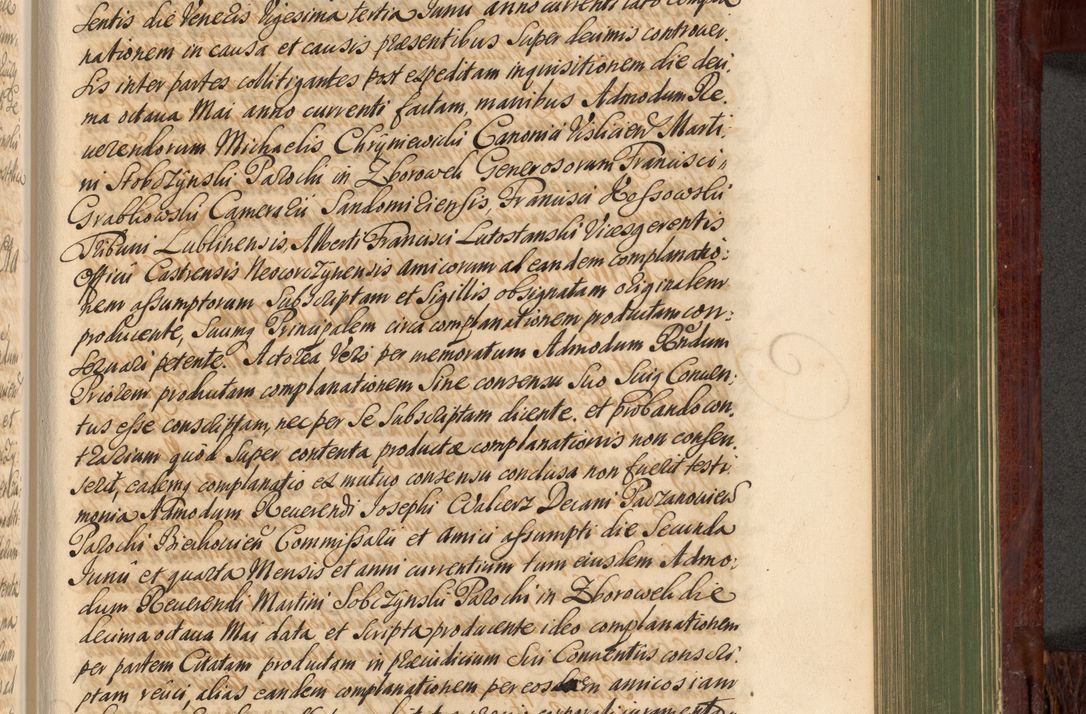 sentis die Veneris Vigesima tertia Junii anno currenti
nationem in causa et causis præsentibus super decimis controver
sis inter partes collitigantes post expeditam inquisitionem die deci
ma octava Mai anno currenti factam, manibus Admodum Re.
verendorum Michaelis Chryniewicki Canonici Visliciens Marti
ni Stobczynski Parochi in Zborowek Generosorum Francisci
Grabkowski Camerarii Sandomiriensis, Francisci Rossowski
Tribuni Lublinensis, Alberti Francisci Lutostanski Vicesgerentis
officii Castrensis Neocorczynensis amicorum ad eandem complanatio:
nem assumptorum Subscriptam et Sigillis obsignatam originalem
producente, Suumq Principalem circa complanationem productam con:
servari petente. Actorea Vero per memoratum Admodum Rndum
Priorem productam complanationem Sine consensu Suo Suiq Conven:
tus esse conscriptam, nec per Se Subscriptam dicente. et probando con
trarium quod Super contenta productæ complanationis non consen
serit, eademq complanatio ex mutuo consensu conclusa non fuerit testi
monia Admodum Reverendi Josephi Walierz Decani Pacanovien
Parochi Biechovien Commissarii et Amici assumpti die Secunda
Junii et quarta Mensis et anni currentium tum eiusdem Admo:
dum Reverendi Martini Sobczynski Parochi in Zborowek die
decima octava Mai data et scripta producente ideo complanationem
per partem Citatam productam in præiudicium Sui Conventus conscri.
ptam reiici, alias eandem complanationem per eosdem amicos iam